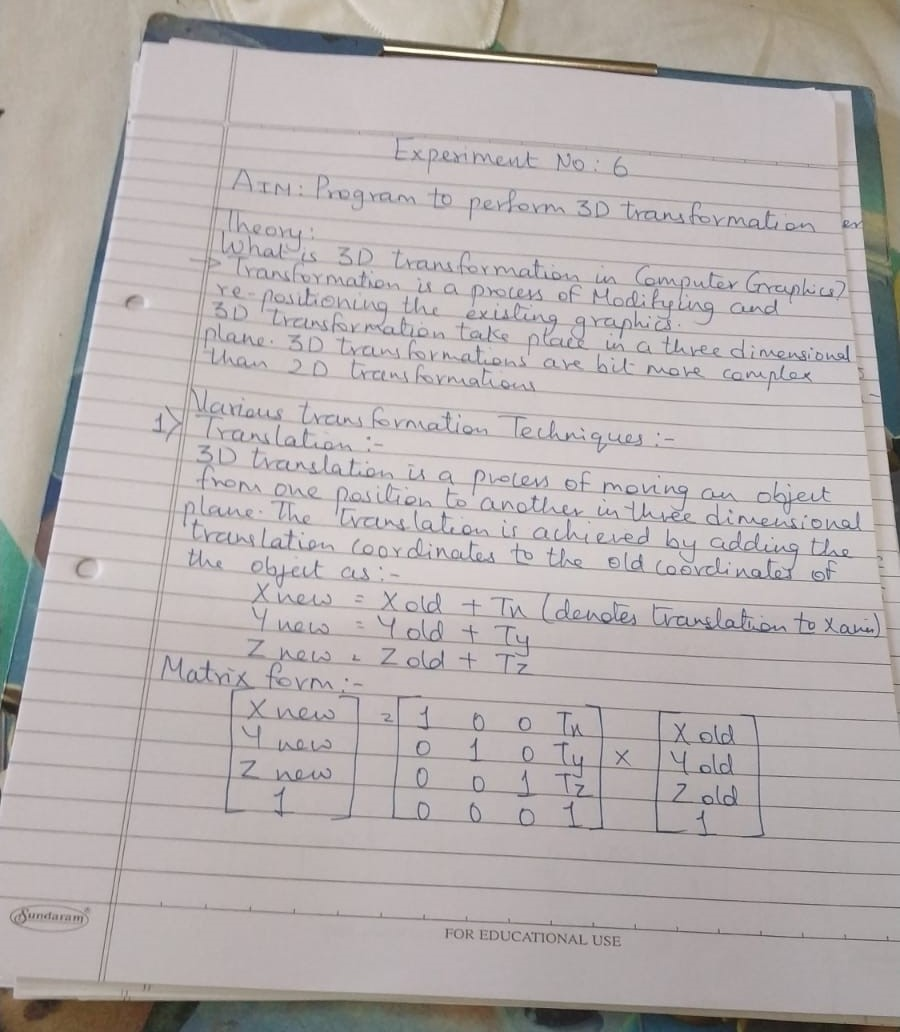 Experiment No: 6
AIM: Program to perform 3D transformation
Theory:
What is 3D transformation in Computer Graphics?
→ Transformation is a process of Modifyling and
re-positioning the existing graphics.
3D transformation take place in a three dimensional
plane. 3D transformations are bit more complex
than 2D transformations
Various transformation Techniques :-
1) Translation :-
3D translation is a process of moving an object
from one position to another in three dimensional
plane. The translation is achieved by adding the
translation coordinates to the old coordinates of
the object as :-
X new = X old + Tx (denotes translation to X axis)
Y new = Y old + Ty
Z new = Z old + Tz
Matrix form :-
X new = 1 0 0 Tx X old
Y new 0 1 0 Ty × Y old
Z new 0 0 1 Tz Z old
1 0 0 0 1 1
Sundaram®
FOR EDUCATIONAL USE